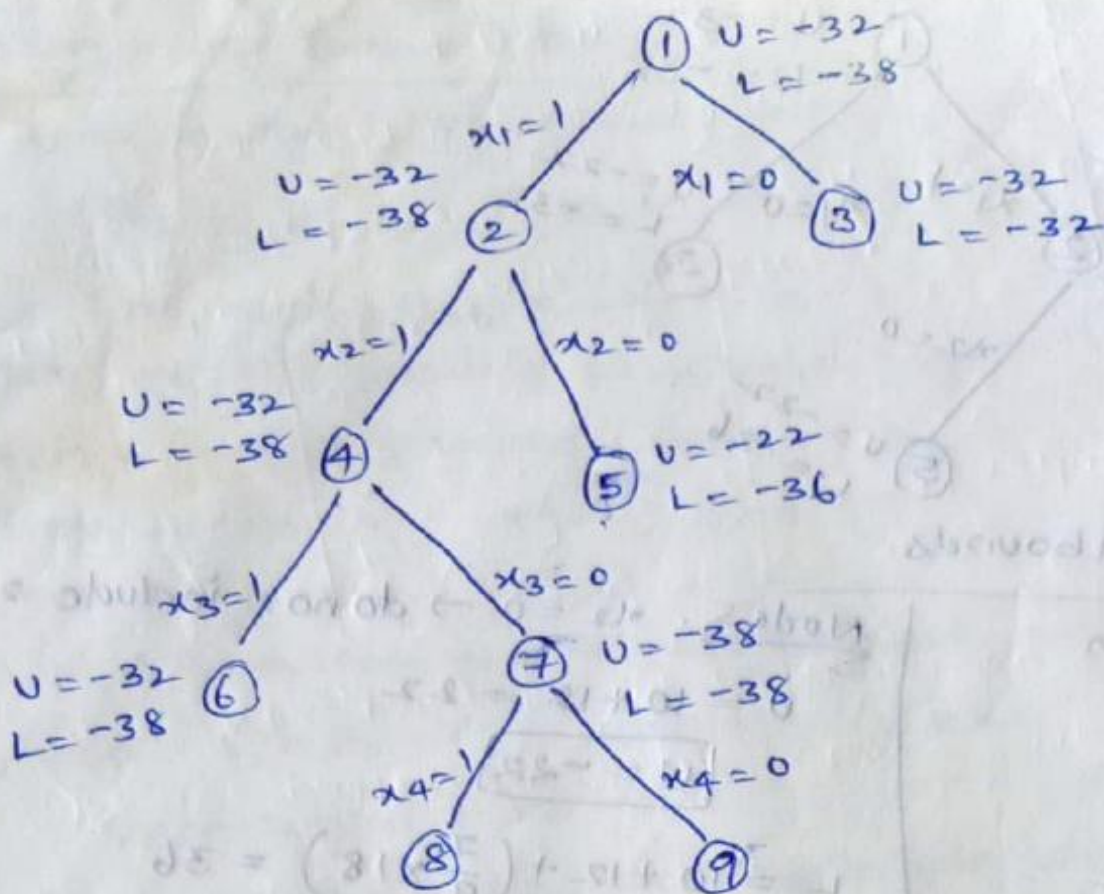 1 U = -32
L = -38
x1=1
x1=0
U = -32
L = -38
2
3 U = -32
L = -32
x2=1
x2=0
U = -32
L = -38
4
5 U = -22
L = -36
x3=1
x3=0
U = -32
L = -38
6
7 U = -38
L = -38
x4=1
x4=0
8
9